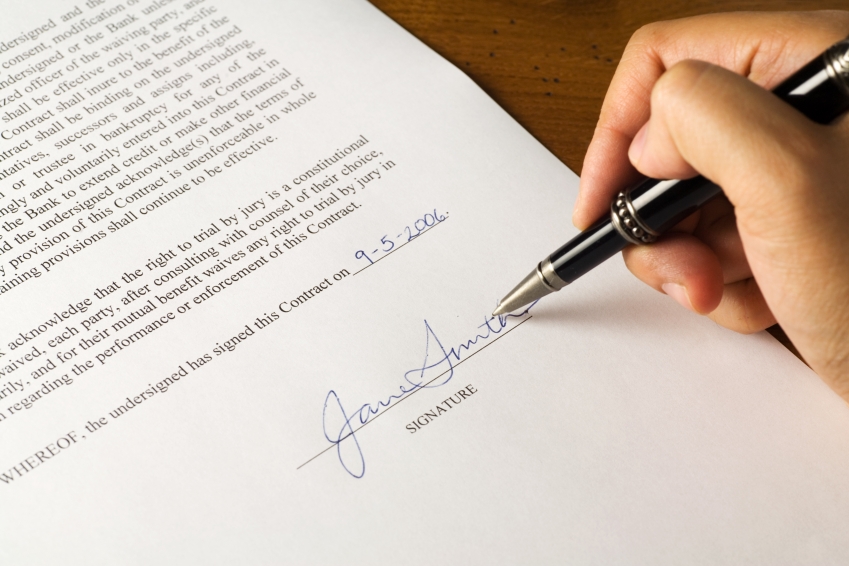 undersigned and the
consent, modification o
ndersigned or the Bank unless
ized officer of the waiving party, and
shall be effective only in the specific
Contract shall inure to the benefit of the
ntract shall be binding on the undersigned
ntatives, successors and assigns including,
or trustee in bankruptcy for any of the
ingly and voluntarily entered into this Contract in
the Bank to extend credit or make other financial
d the undersigned acknowledge(s) that the terms of
y provision of this Contract is unenforceable in whole
aining provisions shall continue to be effective.
acknowledge that the right to trial by jury is a constitutional
waived, each party, after consulting with counsel of their choice,
rily, and for their mutual benefit waives any right to trial by jury in
n regarding the performance or enforcement of this Contract.
WHEREOF, the undersigned has signed this Contract on 9-5-2006.
Jane Smith
SIGNATURE